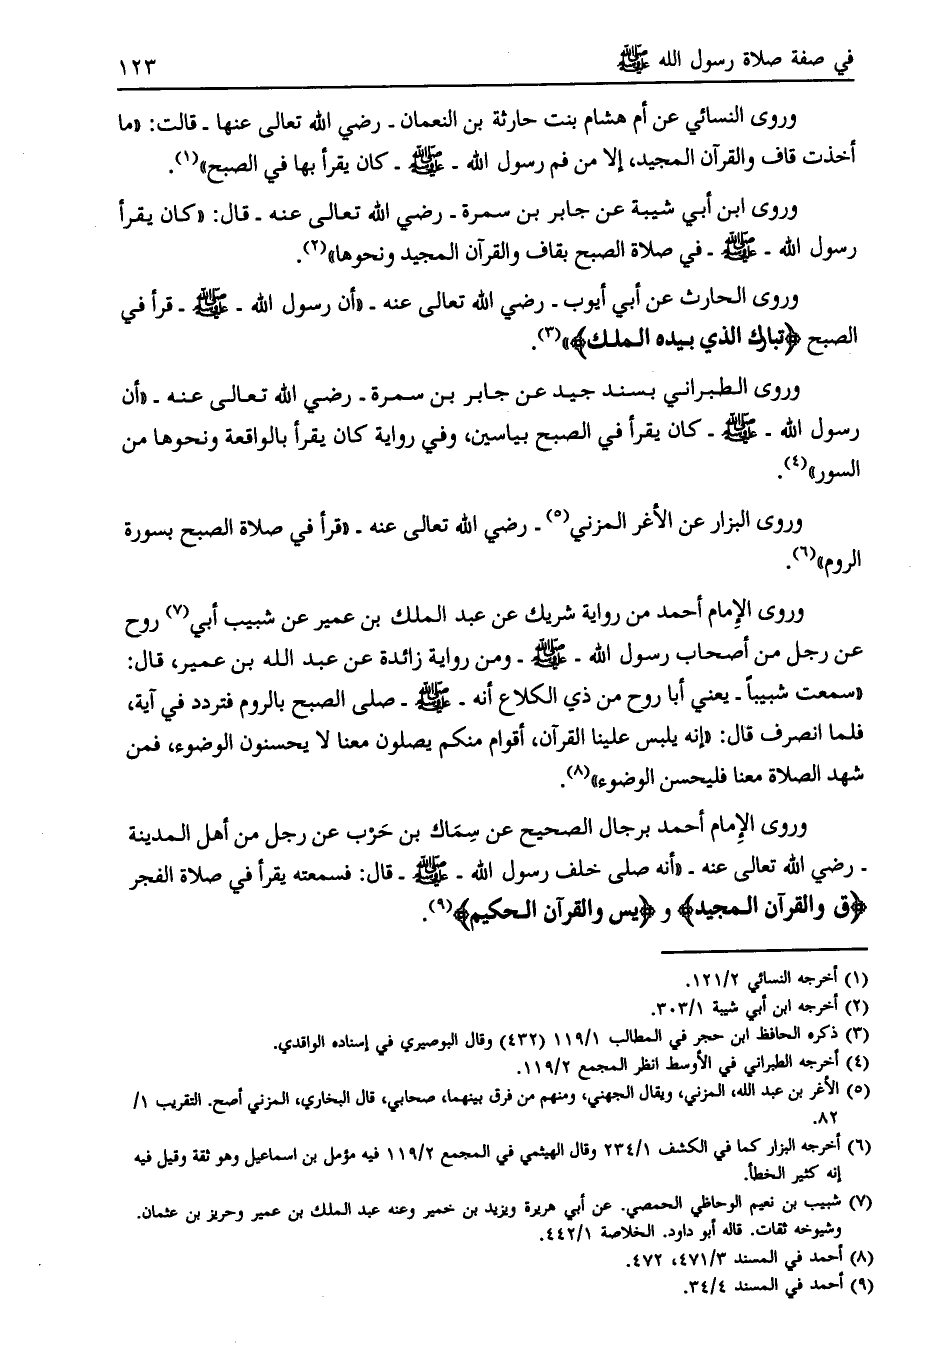 في صفة صلاة رسول الله ﷺ ١٢٣
وروى النسائي عن أم هشام بنت حارثة بن النعمان ـ رضي الله تعالى عنها ـ قالت: «ما
أخذت قاف والقرآن المجيد، إلا من فم رسول الله ـ ﷺ ـ كان يقرأ بها في الصبح»(١).
وروى ابن أبي شيبة عن جابر بن سمرة ـ رضي الله تعالى عنه ـ قال: «كان يقرأ
رسول الله ـ ﷺ ـ في صلاة الصبح بقاف والقرآن المجيد ونحوها»(٢).
وروى الحارث عن أبي أيوب ـ رضي الله تعالى عنه ـ «أن رسول الله ـ ﷺ ـ قرأ في
الصبح ﴿تبارك الذي بيده الملك﴾»(٣).
وروى الطبراني بسند جيد عن جابر بن سمرة ـ رضي الله تعالى عنه ـ «أن
رسول الله ـ ﷺ ـ كان يقرأ في الصبح بياسين، وفي رواية كان يقرأ بالواقعة ونحوها من
السور»(٤).
وروى البزار عن الأغر المزني(٥) ـ رضي الله تعالى عنه ـ «قرأ في صلاة الصبح بسورة
الروم»(٦).
وروى الإمام أحمد من رواية شريك عن عبد الملك بن عمير عن شبيب أبي(٧) روح
عن رجل من أصحاب رسول الله ـ ﷺ ـ ومن رواية زائدة عن عبد الله بن عمير، قال:
«سمعت شبيباً ـ يعني أبا روح من ذي الكلاع أنه ـ ﷺ ـ صلى الصبح بالروم فتردد في آية،
فلما انصرف قال: «إنه يلبس علينا القرآن، أقوام منكم يصلون معنا لا يحسنون الوضوء، فمن
شهد الصلاة معنا فليحسن الوضوء»(٨).
وروى الإمام أحمد برجال الصحيح عن سِمَاك بن حَرْب عن رجل من أهل المدينة
ـ رضي الله تعالى عنه ـ «أنه صلى خلف رسول الله ـ ﷺ ـ قال: فسمعته يقرأ في صلاة الفجر
﴿ق والقرآن المجيد﴾ و ﴿يس والقرآن الحكيم﴾(٩).
(١) أخرجه النسائي ١٢١/٢.
(٢) أخرجه ابن أبي شيبة ٣٠٣/١.
(٣) ذكره الحافظ ابن حجر في المطالب ١١٩/١ (٤٣٢) وقال البوصيري في إسناده الواقدي.
(٤) أخرجه الطبراني في الأوسط انظر المجمع ١١٩/٢.
(٥) الأغر بن عبد الله، المزني، ويقال الجهني، ومنهم من فرق بينهما، صحابي، قال البخاري، المزني أصح. التقريب ١/
٨٢.
(٦) أخرجه البزار كما في الكشف ٢٣٤/١ وقال الهيثمي في المجمع ١١٩/٢ فيه مؤمل بن اسماعيل وهو ثقة وقيل فيه
إنه كثير الخطأ.
(٧) شبيب بن نعيم الوحاظي الحمصي. عن أبي هريرة ويزيد بن خمير وعنه عبد الملك بن عمير وحريز بن عثمان.
وشيوخه ثقات. قاله أبو داود. الخلاصة ٤٤٢/١.
(٨) أحمد في المسند ٤٧١/٣، ٤٧٢.
(٩) أحمد في المسند ٣٤/٤.